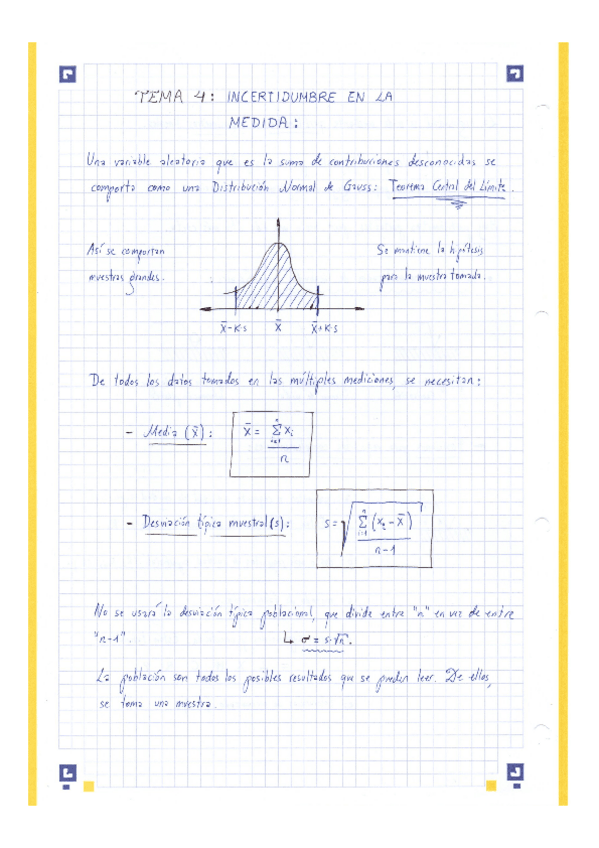 TEMA 4: INCERTIDUMBRE EN LA
MEDIDA:
Una variable aleatoria que es la suma de contribuciones desconocidas se
comporta como una Distribución Normal de Gauss: Teorema Central del Límite.
Así se comportan
muestras grandes.
Se mantiene la hipótesis
para la muestra tomada.
x̄-K·s x̄ x̄+K·s
De todos los datos tomados en las múltiples mediciones, se necesitan:
- Media (x̄): x̄ = Σ_{i=1}^{n} x_i / n
- Desviación típica muestral (s): s = √(Σ_{i=1}^{n} (x_i - x̄)² / n-1)
No se usará la desviación típica poblacional, que divide entre "n" en vez de entre
"n-1". ↳ σ = s·√n.
La población son todos los posibles resultados que se pueden leer. De ellos,
se toma una muestra.